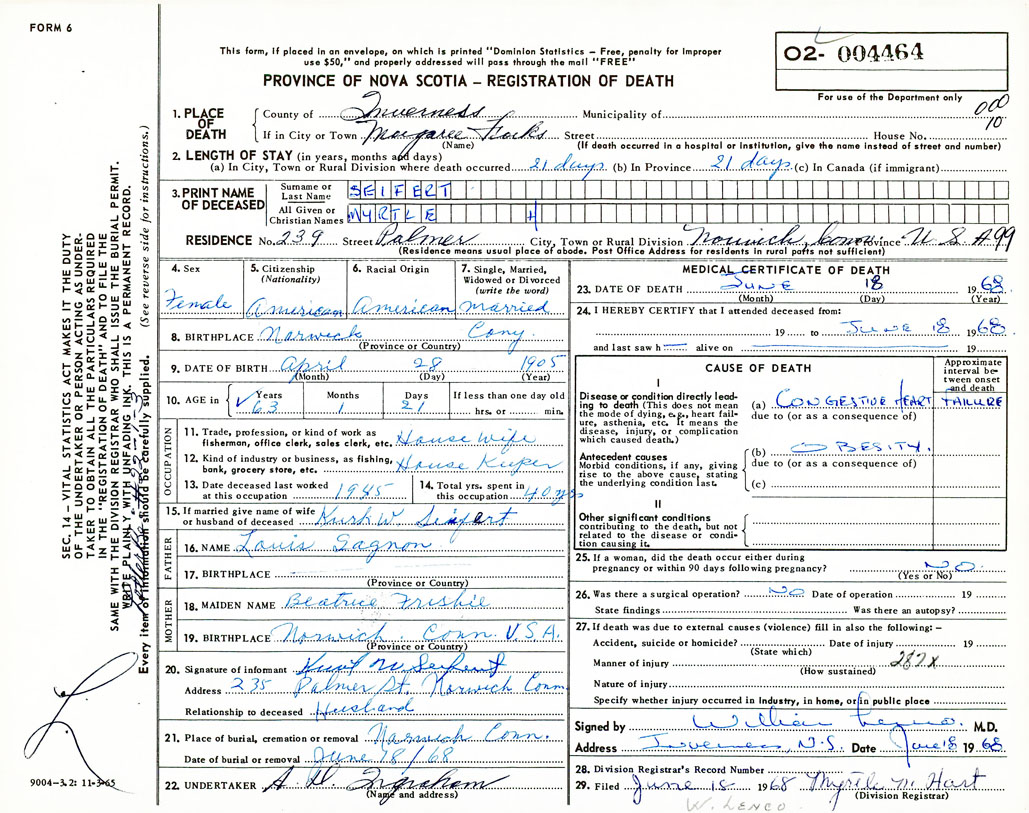 FORM 6
This form, if placed in an envelope, on which is printed "Dominion Statistics – Free, penalty for improper
use $50," and properly addressed will pass through the mail "FREE"
PROVINCE OF NOVA SCOTIA – REGISTRATION OF DEATH
02- 004464
For use of the Department only
000
10
1. PLACE OF DEATH
County of Inverness Municipality of
If in City or Town Margaree Forks Street House No.
(Name) (If death occurred in a hospital or institution, give the name instead of street and number)
2. LENGTH OF STAY (in years, months and days)
(a) In City, Town or Rural Division where death occurred 21 days (b) In Province 21 days (c) In Canada (if immigrant)
3. PRINT NAME OF DECEASED
Surname or Last Name SEIFERT
All Given or Christian Names MYRTLE H
RESIDENCE No. 239 Street Palmer City, Town or Rural Division Norwich, Conn Province U S A 99
(Residence means usual place of abode. Post Office Address for residents in rural parts not sufficient)
4. Sex Female
5. Citizenship (Nationality) American
6. Racial Origin American
7. Single, Married, Widowed or Divorced (write the word) married
8. BIRTHPLACE Norwick
(Province or Country)
9. DATE OF BIRTH April 28 1905
(Month) (Day) (Year)
10. AGE in Years 63 Months 1 Days 21 If less than one day old hrs. or min.
OCCUPATION
11. Trade, profession, or kind of work as fisherman, office clerk, sales clerk, etc. House wife
12. Kind of industry or business, as fishing, bank, grocery store, etc. House Kieper
13. Date deceased last worked at this occupation 1945
14. Total yrs. spent in this occupation 40 yrs
15. If married give name of wife or husband of deceased Kurk W Seifert
FATHER
16. NAME Louis Gagnon
17. BIRTHPLACE
(Province or Country)
MOTHER
18. MAIDEN NAME Beatrice Frisbie
19. BIRTHPLACE Norwich. Conn. U.S.A.
(Province or Country)
20. Signature of informant Kurt W Seifert
Address 235 Palmer St. Norwich Conn
Relationship to deceased Husband
21. Place of burial, cremation or removal Norwich Conn.
Date of burial or removal June 18/68
22. UNDERTAKER A. D. Ingraham
(Name and address)
MEDICAL CERTIFICATE OF DEATH
23. DATE OF DEATH JUNE 18 1968
(Month) (Day) (Year)
24. I HEREBY CERTIFY that I attended deceased from:
19 to JUNE 18 1968
and last saw h alive on 19
CAUSE OF DEATH
Approximate interval between onset and death
I
Disease or condition directly leading to death (This does not mean the mode of dying, e.g., heart failure, asthenia, etc. It means the disease, injury, or complication which caused death.)
(a) CONGESTIVE HEART FAILURE
due to (or as a consequence of)
Antecedent causes
Morbid conditions, if any, giving rise to the above cause, stating the underlying condition last.
(b) OBESITY.
due to (or as a consequence of)
(c)
II
Other significant conditions
contributing to the death, but not related to the disease or condition causing it.
25. If a woman, did the death occur either during pregnancy or within 90 days following pregnancy? NO.
(Yes or No)
26. Was there a surgical operation? NO Date of operation 19
State findings Was there an autopsy?
27. If death was due to external causes (violence) fill in also the following: –
Accident, suicide or homicide? Date of injury 19
(State which)
Manner of injury 287X
(How sustained)
Nature of injury
Specify whether injury occurred in industry, in home, or in public place
Signed by William M.D.
Address Inverness, N.S. Date June 18 1968
28. Division Registrar's Record Number
29. Filed June 18 1968 Myrtle M Hart
(Division Registrar)
W. LENCO
SEC. 14 – VITAL STATISTICS ACT MAKES IT THE DUTY
OF THE UNDERTAKER OR PERSON ACTING AS UNDER-
TAKER TO OBTAIN ALL THE PARTICULARS REQUIRED
IN THE "REGISTRATION OF DEATH" AND TO FILE THE
SAME WITH THE DIVISION REGISTRAR WHO SHALL ISSUE THE BURIAL PERMIT.
WRITE PLAINLY WITH UNFADING INK. THIS IS A PERMANENT RECORD.
Every item of information should be carefully supplied. (See reverse side for instructions.)
9004–3.2: 11-3-65